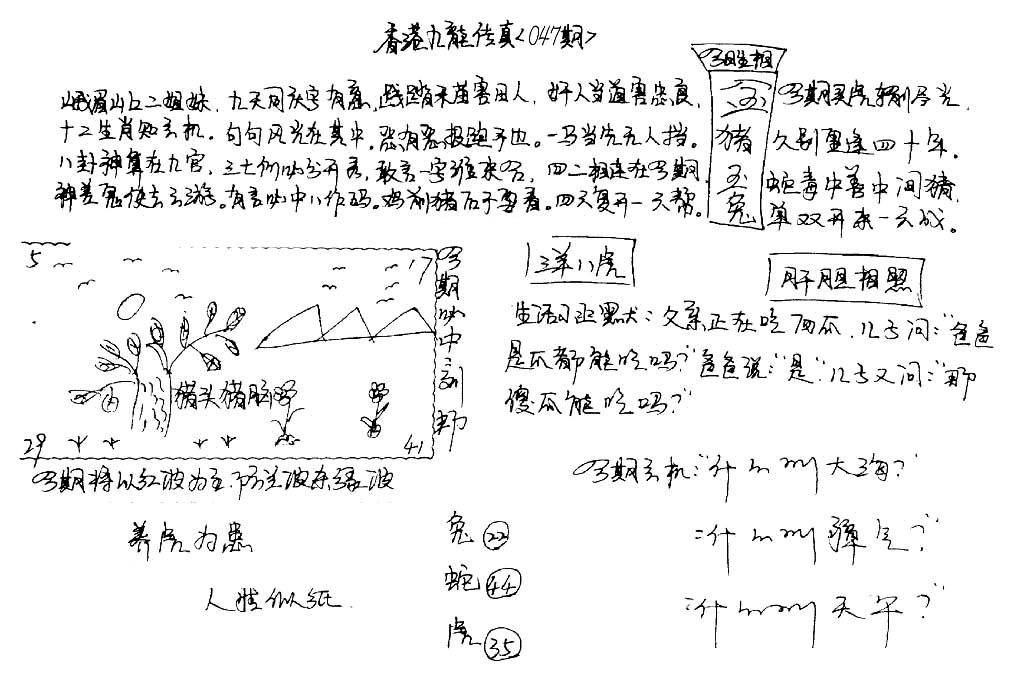 香港九龍传真<047期>
峨眉山上二姐妹，九天同庆字有意，践踏禾苗害田人，奸人当道害忠良，
十二生肖知玄机．句句风光在其中．恶有恶报跑不也．一马当先无人挡。
八卦神算在九宫，三七何必分开看，敢言一字谁来否，四二相连在另期．
神差鬼使去云游。有言必中八作码。鸡前猪后子要看。四天复开一天帮。
另期生相
玉
猪
玉
兔
另期买虎有别导光，
久别重逢四十年．
蛇毒中兽中间猪，
单双开来一云战。
5
17
猪头猪脑
29
41
另期必中三别野
另期将以红波为主．防兰波杀绿波
三羊八虎
肝胆相照
生活幽默：父亲正在吃西瓜．儿子问："爸爸
是瓜都能吃吗？"爸爸说："是"．儿子又问："那
傻瓜能吃吗？"
另期玄机："什么叫大海？"
："什么叫骄气？"
："什么叫天午？"
养虎为患
人胜似纸
兔 22
蛇 44
虎 35